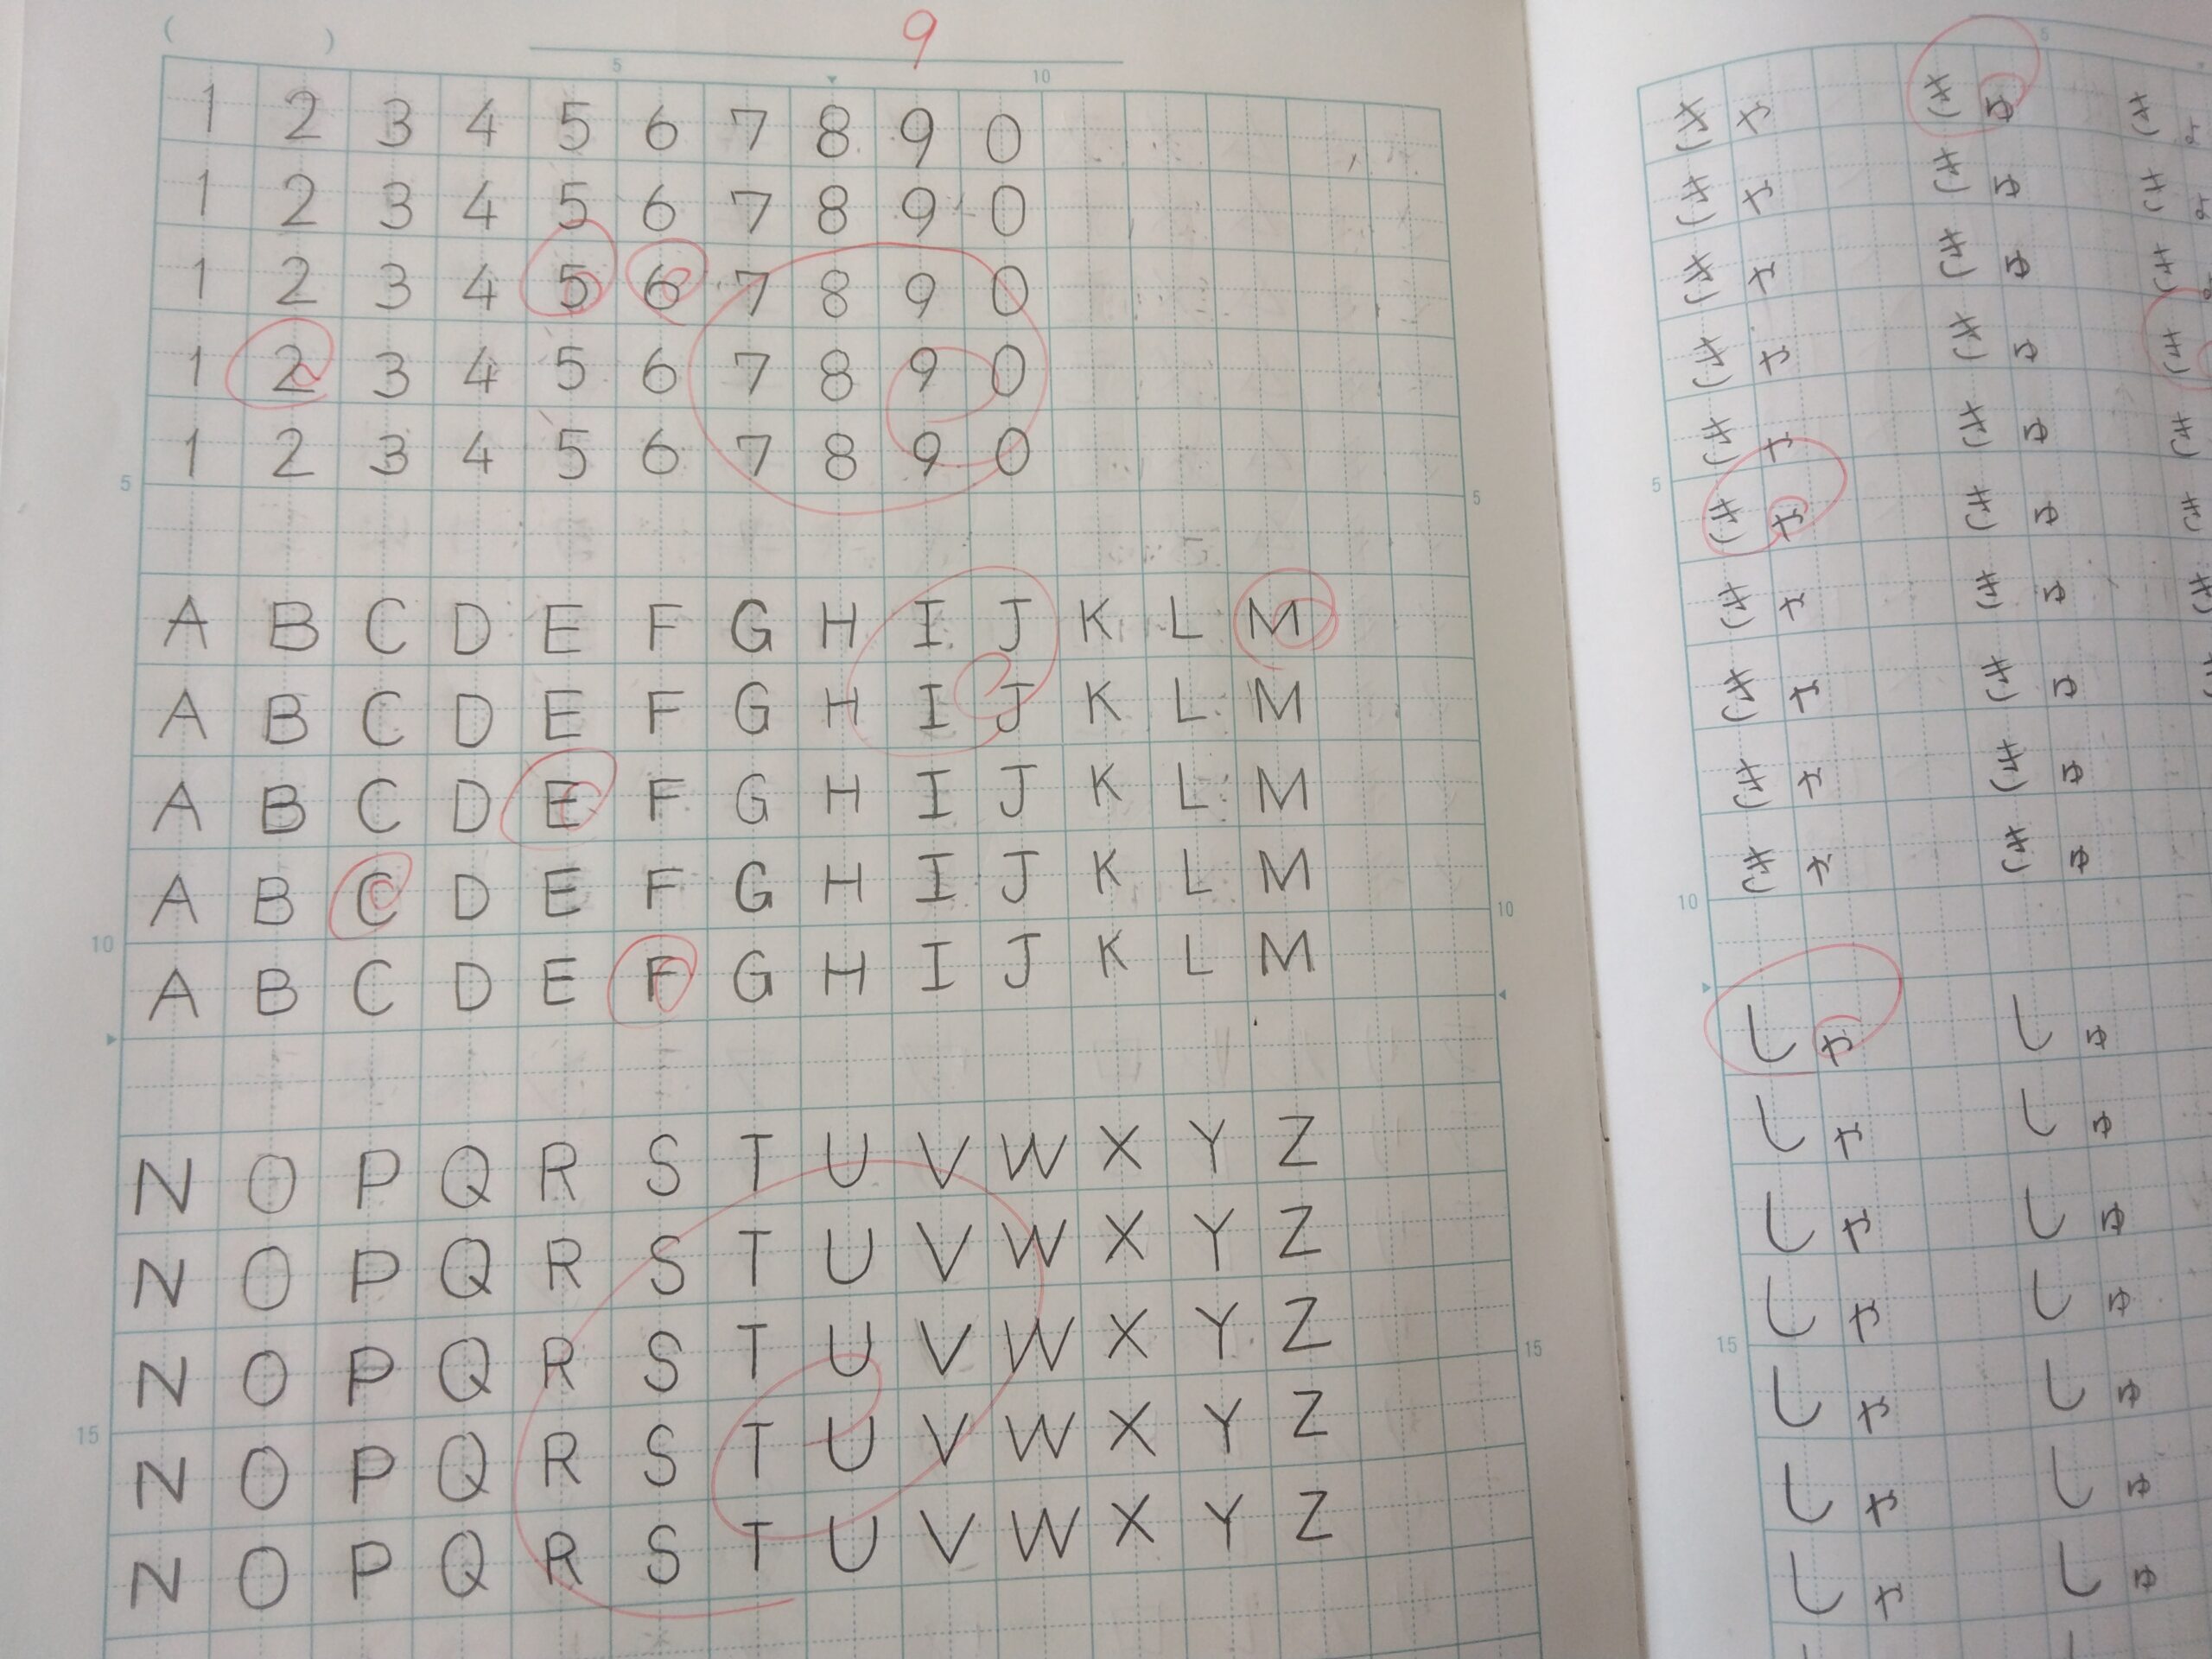 9
5 10
1 2 3 4 5 6 7 8 9 0
1 2 3 4 5 6 7 8 9 0
1 2 3 4 5 6 7 8 9 0
1 2 3 4 5 6 7 8 9 0
1 2 3 4 5 6 7 8 9 0
5 5
A B C D E F G H I J K L M
A B C D E F G H I J K L M
A B C D E F G H I J K L M
A B C D E F G H I J K L M
10 10
A B C D E F G H I J K L M
N O P Q R S T U V W X Y Z
N O P Q R S T U V W X Y Z
N O P Q R S T U V W X Y Z
15 15
N O P Q R S T U V W X Y Z
N O P Q R S T U V W X Y Z
5
きゃ きゅ き
きゃ きゅ き
きゃ きゅ き
きゃ きゅ き
きゃ きゅ き
5
きゃ きゅ き
きゃ きゅ き
きゃ きゅ
きゃ きゅ
きゃ きゅ
10
しゃ しゅ
しゃ しゅ
しゃ しゅ
しゃ しゅ
15
しゃ しゅ
しゃ しゅ
しゃ しゅ